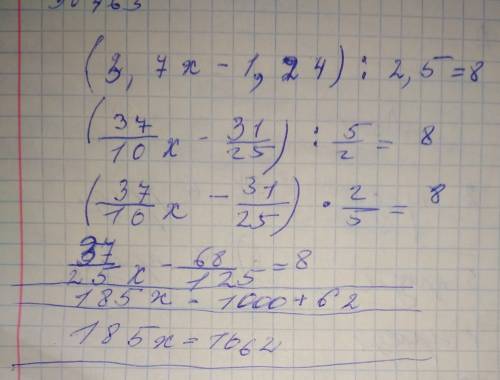 (3,7x-1,24):2,5=8
(37/10 x - 31/25) : 5/2 = 8
(37/10 x - 31/25) · 2/5 = 8
37/25 x - 68/125 = 8
185x = 1000+62
185x=1062